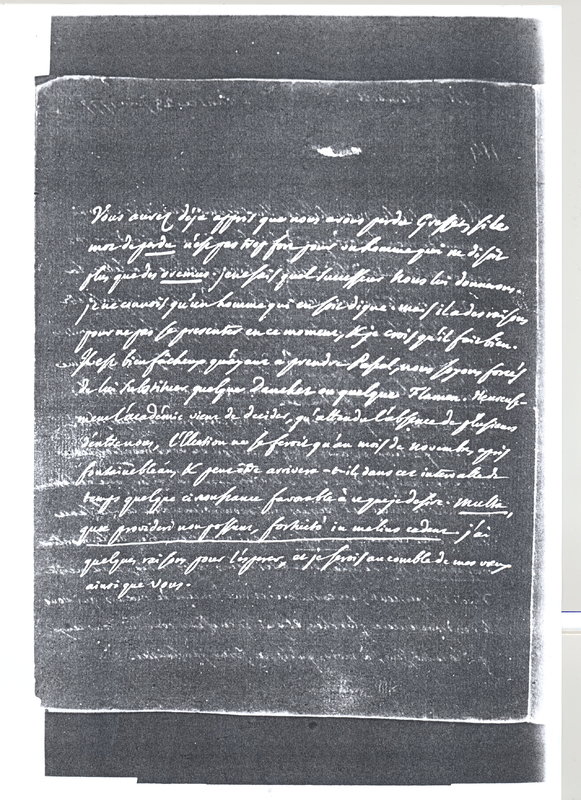 Vous aurez déja appris que nous avons perdu Gresset, si le
mot de perdu n'est pas trop fort pour un homme qui ne disoit
plus que des oremus. je ne sais quel successeur nous lui donnerons.
je ne connois qu'un homme qui en soit digne. mais il a des raisons
pour ne pas se presenter en ce moment, & je crois qu'il fait bien.
Il est bien fâcheux qu'ayant à prendre Pascal, nous soyons forcés
de lui substituer quelque Danchet ou quelque Flamen. Heureuse-
ment l'académie vient de decider, qu'attendu l'absence de plusieurs
d'entre nous, l'Election ne se feroit qu'au mois de novembre, après
fontainebleau, & peut être arrivera-t-il dans cet intervalle de
temps quelque circonstance favorable à ce que je desire. multa,
quae provideri non possunt, fortuitò in melius cadunt. j'ai
quelques raisons pour l'esperer, et je serois au comble de mes voeux
ainsi que vous.